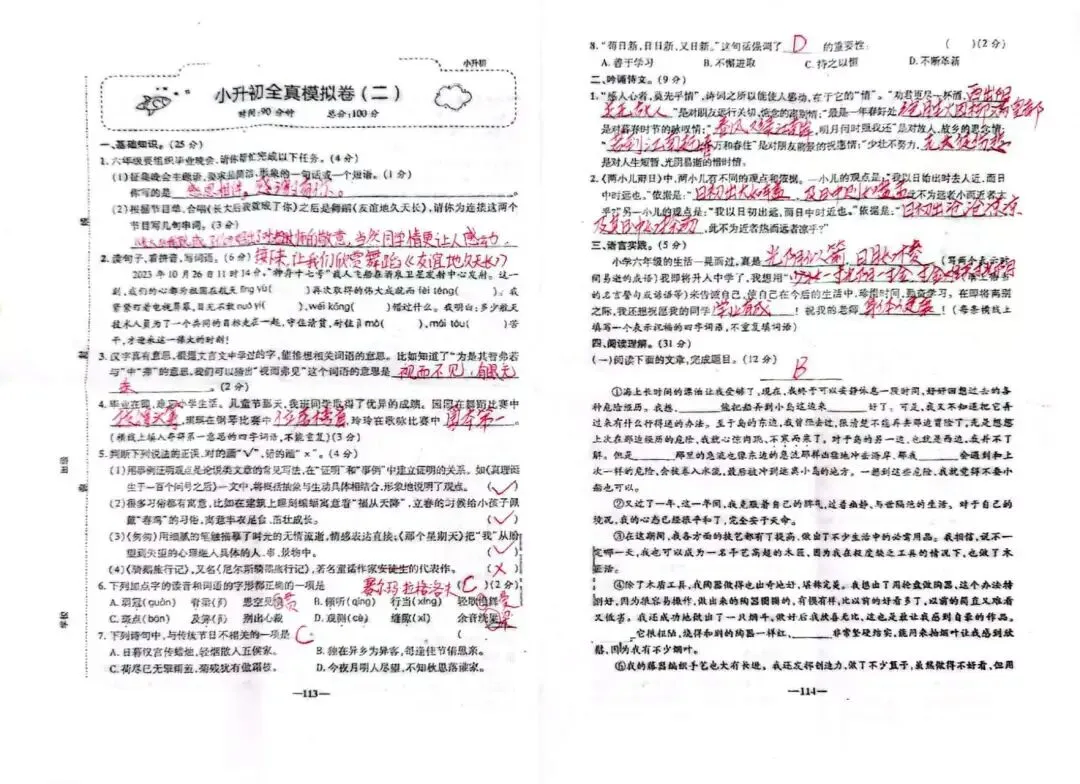 小升初
小升初全真模拟卷（二）
时间:90 分钟 总分:100 分
一、基础知识。（25 分）
1. 六年级要组织毕业晚会,请你帮忙完成以下任务。（4 分）
(1)征集晚会主题语,要求是简洁、形象的一句话或一个短语。（1 分）
你写的是 感恩相遇。感谢有你。
(2)根据节目单,合唱《长大后我就成了你》之后是舞蹈《友谊地久天长》,请你为连接这两个
节目写几句串词。（3 分）
的敬意,当然同学情更让人感动,
接下来,让我们欣赏舞蹈《友谊地久天长》
2. 读句子,看拼音,写词语。（6 分）
2023 年 10 月 26 日 11 时 14 分,“神舟十七号”载人飞船在酒泉卫星发射中心发射。这一
刻,我们的心都为祖国在航天 lǐng yù( )再次取得的伟大成就而 fèi téng( )。我
紧紧盯着电视屏幕,目不 nuò yí( ),wéi kǒng( )错过什么。我明白:多少航天
技术人员为了一个共同的目标走在一起,守住清贫,耐住 jì mò( ),mái tóu( )苦
干,才迎来这一伟大的时刻!
3. 汉字真有意思,根据文言文中学过的字,能推想相关词语的意思。比如知道了“为是其智弗若
与”中“弗”的意思,我们可以猜出“视而弗见”这个词语的意思是 视而不见,
。（2 分）
4. 毕业在即,难忘小学生活。儿童节那天,我班同学取得了优异的成绩。 在舞蹈比赛中
,琪琪在钢琴比赛中 位居榜首,玲玲在歌咏比赛中 第一。
(横线上填入夺得第一意思的四字词语,不能重复)（3 分）
5. 判断下列说法的正误,对的画“√”,错的画“×”。（4 分）
(1)用事例证明观点是论说类文章的常见写法,在“证明”和“事例”中建立证明的关系。如《真理诞
生于一百个问号之后》一文中,将概括抽象与生动具体相结合,形象地说明了观点。 (√)
(2)很多习俗都有寓意,比如在建筑上雕刻蝙蝠寓意着“福从天降”,立春的时候给小孩子佩
戴“春鸡”的习俗,寓意丰衣足食、茁壮成长。 (√)
(3)《匆匆》用细腻的笔触描摹了时光的无情流逝,情感表达直接;《那个星期天》把“我”从盼
望到失望的心理融入具体的人、事、景物中。 (√)
(4)《骑鹅旅行记》,又名《尼尔斯骑鹅旅行记》,若名童话作家安徒生的代表作。 (×)
塞尔玛·拉格洛夫
6. 下列加点字的读音和词语的字形都正确的一项是 ( C )（2 分）
A. 弱冠(guàn) 脊梁(jǐ) 思空见 贯 B. 倾听(qīng) 行当(xíng) 轻歌慢舞 曼
C. 斑点(bān) 及第(jí) 别出心裁 D. 观测(cè) 缝隙(xì) 余音绕 梁
7. 下列诗句中,与传统节日不相关的一项是 C (
A. 日暮汉宫传蜡烛,轻烟散入五侯家。 B. 独在异乡为异客,每逢佳节倍思亲。
C. 荷尽已无擎雨盖,菊残犹有傲霜枝。 D. 今夜月明人尽望,不知秋思落谁家。
—113—
8. “苟日新,日日新,又日新。”这句话强调了 D 的重要性: ( )（2 分）
A. 善于学习 B. 不懈进取 C. 持之以恒 D. 不断革新
二、吟诵诗文。（9 分）
1. “感人心者,莫先乎情”,诗词之所以能使人感动,在于它的“情”。“劝君更尽一杯酒, 西出阳
关无故人”是对朋友远行关切、惦念的离别情;“最是一年春好处,
是对暮春时节的脉脉情;“春风又绿江南岸,明月何时照我还”是对故人、故乡的思念情;
“若到江南赶上春,万和春住”是对朋友前景的祝愿情;“少壮不努力, 老大徒伤悲
是对人生短暂、光阴易逝的惜时情。
2. 《两小儿辩日》中,两小儿有不同的观点和依据。一小儿的观点是:“我以日始出时去人近,而日
中时远也。”依据是:“日初出大如车盖,及日中则如盘盂,此不为远者小而近者大
乎?”另一小儿的观点是:“我以日初出远,而日中时近也。”依据是:“日初出沧沧凉凉
及其日中如探汤,此不为近者热而远者凉乎?”
三、语言实践。（5 分）
小学六年级的生活一晃而过,真是 光阴似箭 、日月如梭 (写两个表示时
间易逝的成语)我即将升入中学了,我想用“
的名言警句或谚语等)来告诫自己,使自己在今后的生活中,珍惜时间,勤奋学习。在即将离别
之际,我还想祝愿我的同学 学业有成 !祝我的老师 身体健康 !(每条横线上
填写一个表示祝福的四字词语,不重复填词语)
四、阅读理解。（31 分）
(一)阅读下面的文章,完成题目。（12 分）
B
①海上长时间的漂泊让我受够了,现在,我终于可以安静休息一段时间,好好回想过去的各
种危险经历。我想,______能把船弄到小岛这边来______好了。可是,我又不知道把它弄
过来有什么行得通的办法。至于岛的东边,我曾经去过,很清楚不能再去那边冒险了,光是想想
上次在那边经历的危险,我就心惊肉跳、不寒而栗了。对于岛的另一边,也就是西边,我并不了
解。但是______那里的急流也像东边的急流那样凶猛地冲击海岸,那我______会遇到和上
次一样的危险,会被卷入水流,最后被冲到远离小岛的地方。一想到这些危险,我就觉得不要小
船也可以。
②又过了一年。这一年间,我克服着自己的脾气,过着幽静、与世隔绝的生活。对于自己的
境况,我的心态已经很平和了,完全安于天命。
③在这期间,我各方面的技艺都有了提高,做出了不少生活中的必需用品。我相信,说不一
定哪一天,我也可以成为一名手艺高超的木匠,因为我在极度缺乏工具的情况下,也做了木
匠活。
④除了木匠工具,我陶器做得也出奇地好,堪称完美。我想出了用轮盘做陶器,这个办法特
别好,因为很容易操作,做出来的陶器圆圆的,有模有样,比以前的好看多了,以前的简直又难看
又低害。我还成功地做出了一只烟斗,做好后我欣喜无比,这也是最让我感到自豪的作品。
______它很粗陋,烧得和别的陶器一样红,______非常坚硬结实,能用来抽烟叶让我感到欣
慰,因为我有不少烟叶。
⑤我的藤器编织手艺也大有长进。我还发挥创造力,做了不少篮子,虽然做得不好看,但用
—114—
学校
班级